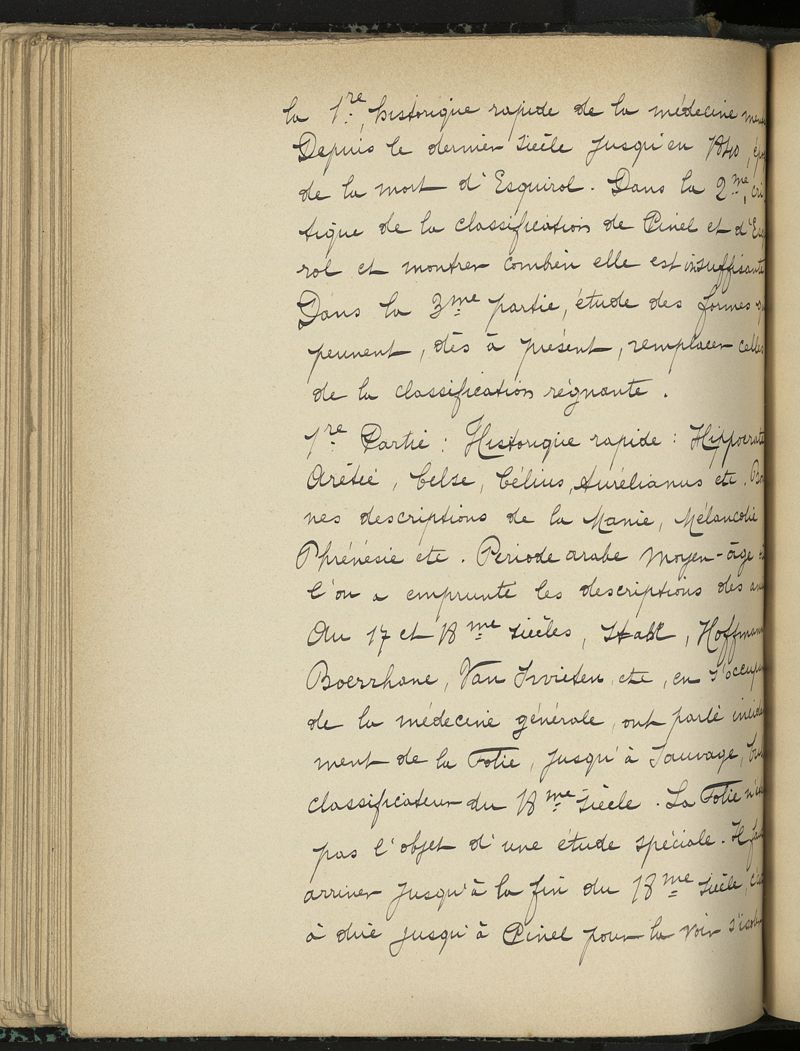 la 1re, historique rapide de la médecine
Depuis le dernier siècle jusqu'en 1840,
de la mort d'Esquirol. Dans la 2me, cri
tique de la classification de Pinel et d'Es
rol et montrer combien elle est insuffisante
Dans la 3me partie, étude des formes
peuvent, dès à présent, remplacer celles
de la classification régnante.
1re Partie : Historique rapide : Hippocrate
Arétée, Celse, Célius, Aurélianus etc.
nes descriptions de la Manie, Mélancolie
Phrénésie etc. Période arabe Moyen-âge
l'on a emprunté les descriptions des an
Au 17 et 18me siècles, Stahl, Hoffmann
Boerrhane, Van Swieten, etc, en s'occup
de la médecine générale, ont parlé incid
ment de la Folie, jusqu'à Sauvage,
classificateur du 18me siècle. La Folie
pas l'objet d'une étude spéciale. Il
arriver jusqu'à la fin du 18me siècle
à dire jusqu'à Pinel pour la voir s'isol